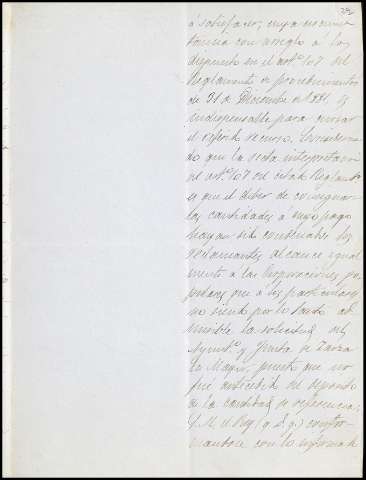 39
á satisfacer; cuya circuns
tancia con arreglo á lo
dispuesto en el artº 67 del
Reglamento de procedimientos
de 31 de Diciembre de 1881, es
indispensable para cursar
el referido recurso. Consideran
do que la recta interpretacion
del artº 67 del citado Reglamto
es que el deber de consignar
las cantidades á cuyo pago
hayan sido condenados los
reclamantes alcance igual
mente á las Corporaciones po
pulares que á los particulares
no siendo por lo tanto ad
misible la solicitud del
Ayuntº y Junta de Zarza
la Mayor, puesto que no
fué antecedida del deposito
de la cantidad de referencia;
S. M. el Rey (q. D. g.) confor
mandose con lo informado